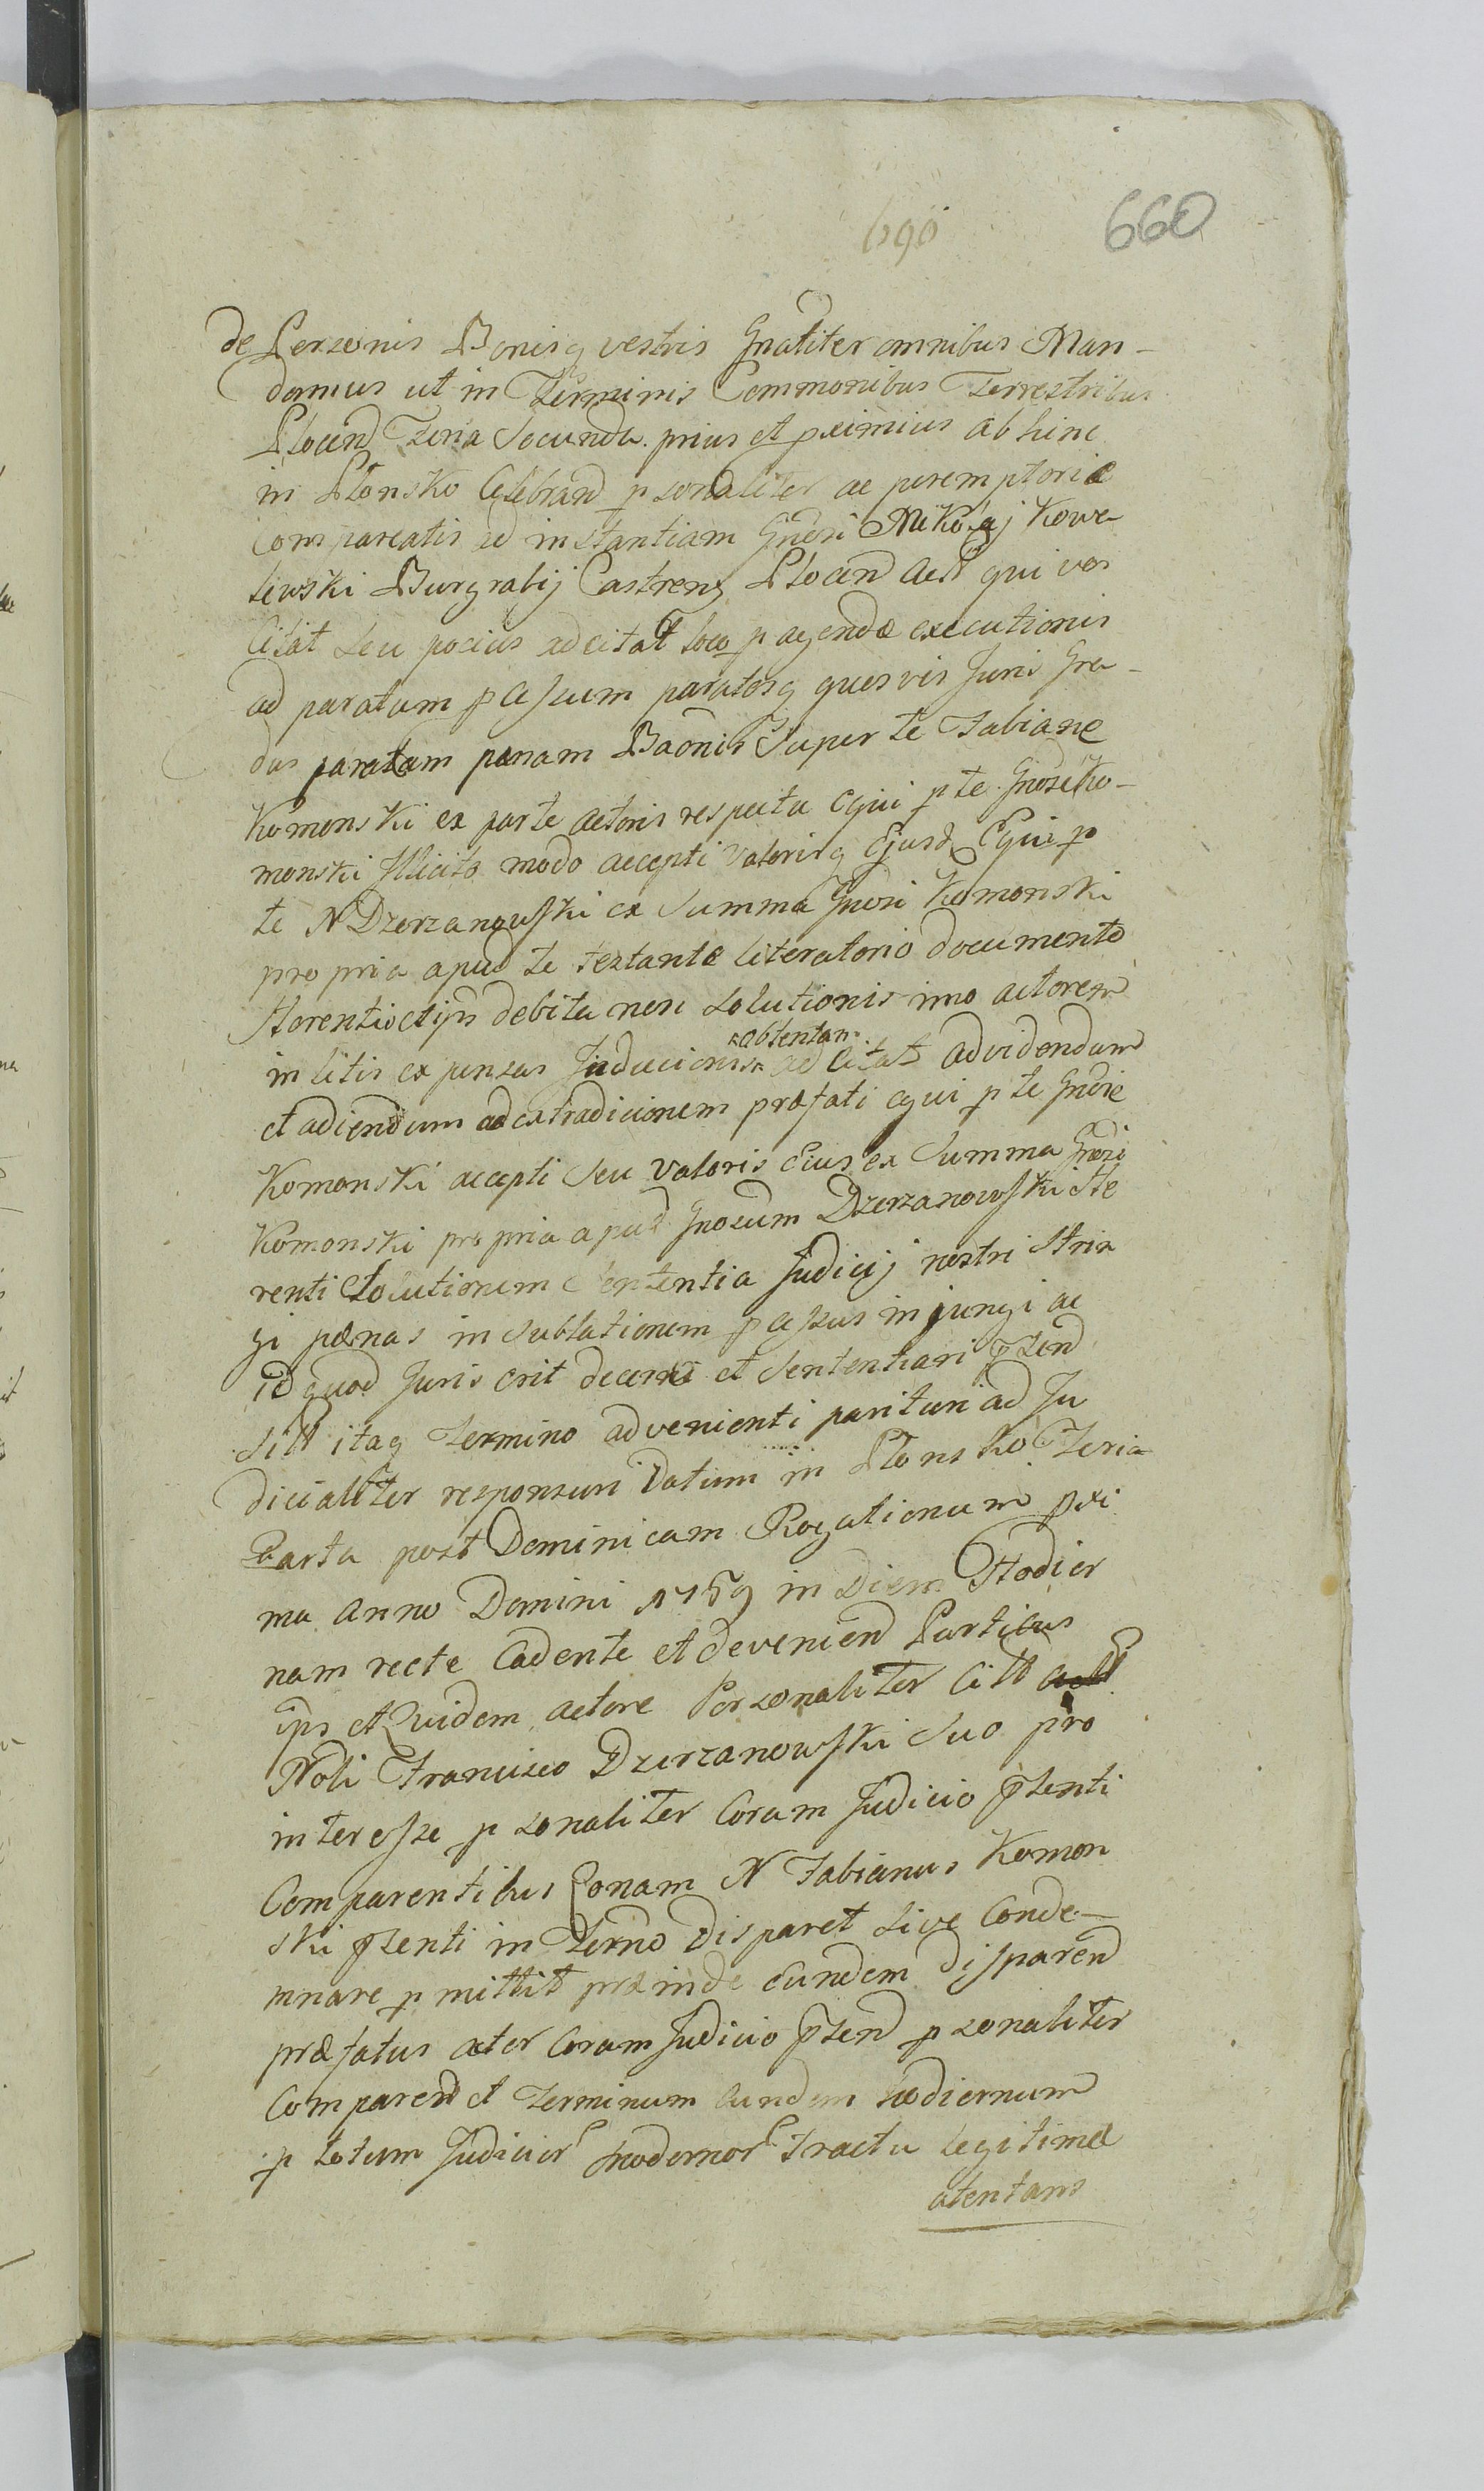 690 660
de Personis Bonisq vestris Gnaliter omnibus Man-
damus ut in Terminis Commonibus Terrestribus
Plocen Feria Secunda prius et pximius abhinc
in Płonsko Celebrand psonaliter ac peremptorie
Compareatis ad instantiam Gnosi Mikołaj Kowa
lewski Burgrabij Castrens Plocen act qui vos
Citat seu pocius adcitat loco pagendæ executionis
ad paratum pcessum paratosq quosvis Juris Gra-
dus paratam pænam Baonis super te Fabiane
Komonski ex parte actoris respectu equi p te Gnose Ko-
monski Illicito modo accepti valorisq Ejusd Equi p
te N Dzerzanowski ex Summa Gnosi Komonski
propria apud te testante literatorio documento
Hærenti et ijs debita non solutionis imo actorem
in litis expensas Inducionis
obtentam
ad citat ad videndum
et adiendum ad extradicionem præfati equi p te Gnose
Komonski accepti seu valoris Eius ex Summa Gnosi
Komonski propria apud Gnosum Dzerzanowski Hæ
renti Solutionem Sententia Judicij nostri Strin
gi pænas in sublationem pcessus injungi ac
id quod Juris erit decerni et sententiari psend
sitt itaq Termino advenienti parituri ad Ju
dicialiter responsuri Datum in Płonsko Feria
Quarta post Dominicam Rogationum pxi
ma Anno Domini 1759 in Diem Hodier
nam recte Cadente et devenien Partibus
ips et Quidem actore Personaliter Citt
Nobi Francisco Dzerzanowski suo pro
interesse psonaliter Coram Judicio psenti
Comparentibus Qonam N Fabianus Komon
ski psenti in Terno disparet sive Conde-
mnare pmittit proinde eundem disparen
præfatus actor Coram Judicio psen psonaliter
Comparen et Terminum eundem hodiernum
p totum Judicior modernor tractu legitime
atentans